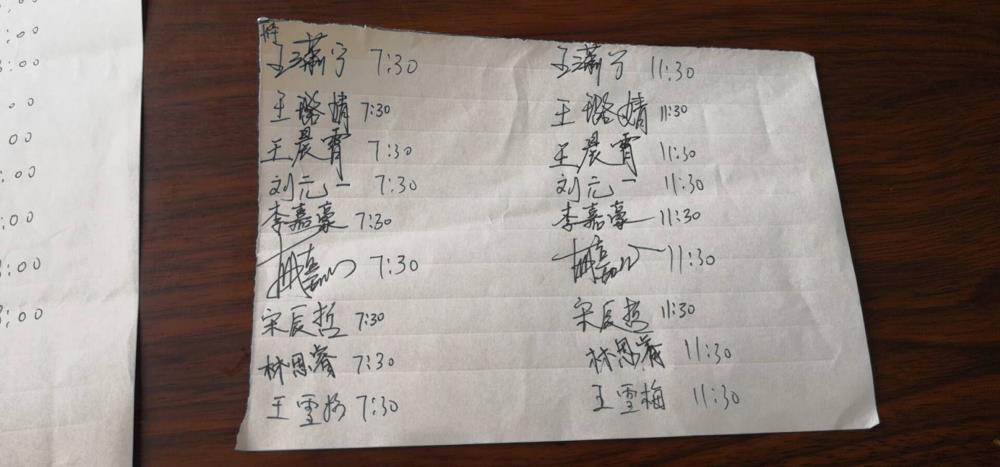 :00
:00
8:00
:00
00
:00
:00
:00
8:00
王潇宁 7:30 王潇宁 11:30
王璐婧 7:30 王璐婧 11:30
王晨霄 7:30 王晨霄 11:30
刘元一 7:30 刘元一 11:30
李嘉豪 7:30 李嘉豪 11:30
7:30 11:30
宋辰哲 7:30 宋辰哲 11:30
林思睿 7:30 林思睿 11:30
王雪梅 7:30 王雪梅 11:30